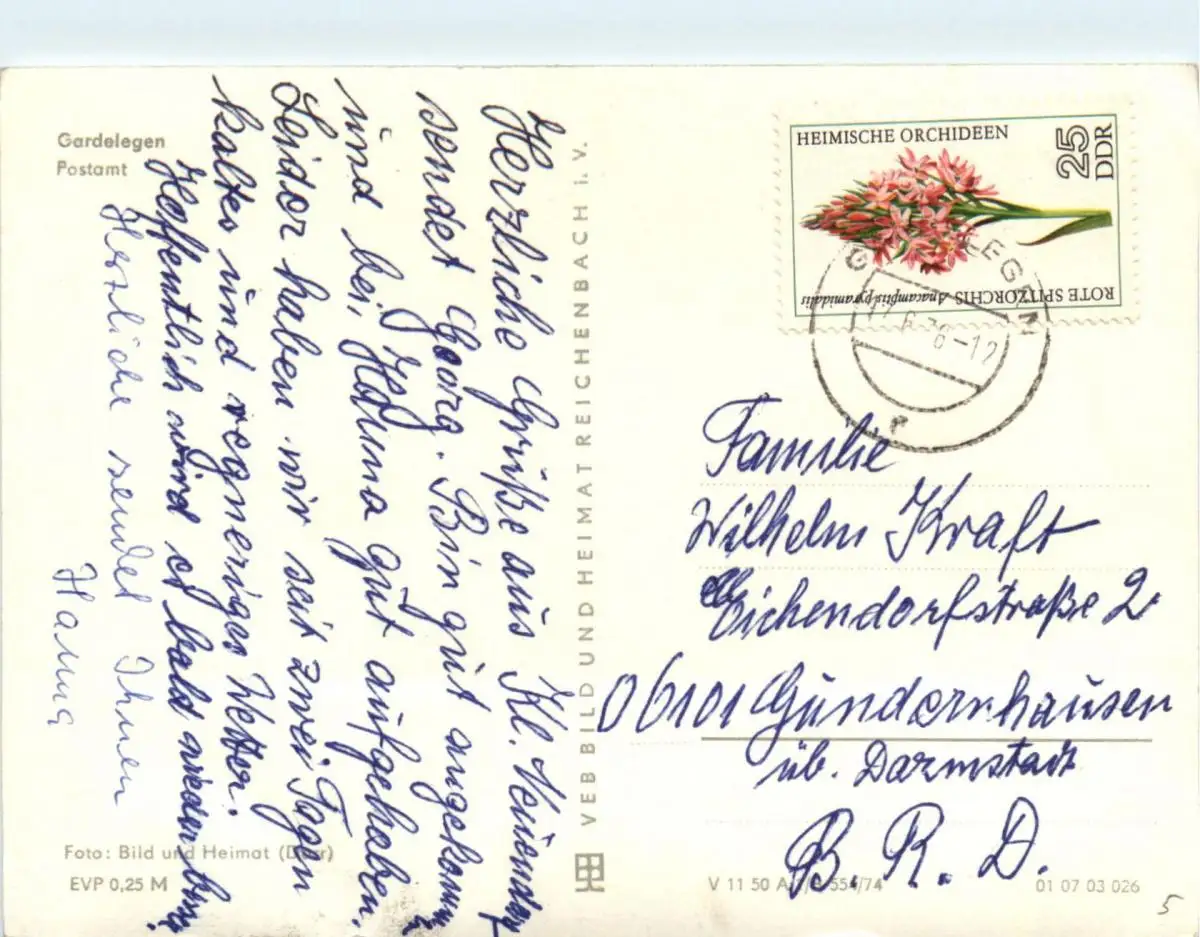 Gardelegen
Postamt
Herzliche Grüße aus Kl. Neuendorf
sendet Georg. Bin gut angekomm
und bei Hanna gut aufgehoben.
Leider haben wir seit zwei Tagen
kaltes und regneriges Wetter.
Hoffentlich wird es bald wieder
Herzliche sendet Ihnen
Hanna
Foto: Bild und Heimat
EVP 0,25 M
VEB BILD UND HEIMAT REICHENBACH i. V.
HEIMISCHE ORCHIDEEN
25
DDR
ROTE SPITZORCHIS Anacamptis pyramidalis
Familie
Wilhelm Kraft
Eichendorfstraße 2
06101 Gundernhausen
üb. Darmstadt
B. R. D.
V 11 50
01 07 03 026
5